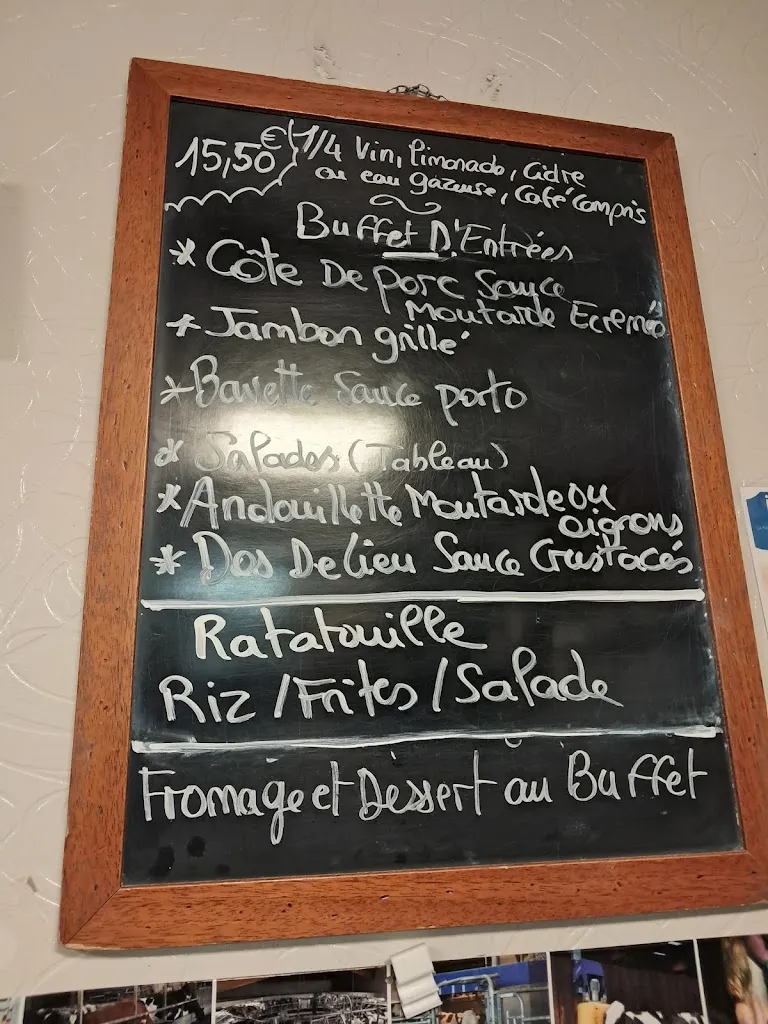 15,50€ 1/4 Vin, limonade, Cidre
ou eau gazeuse, Café compris
Buffet D'Entrées
* Côte De porc Sauce
Moutarde Ecremée
* Jambon grillé
* Bavette Sauce porto
* Salades (Tableau)
* Andouillette Moutarde ou
oignons
* Dos De lieu Sauce Crustacés
Ratatouille
Riz / Frites / Salade
Fromage et Dessert au Buffet